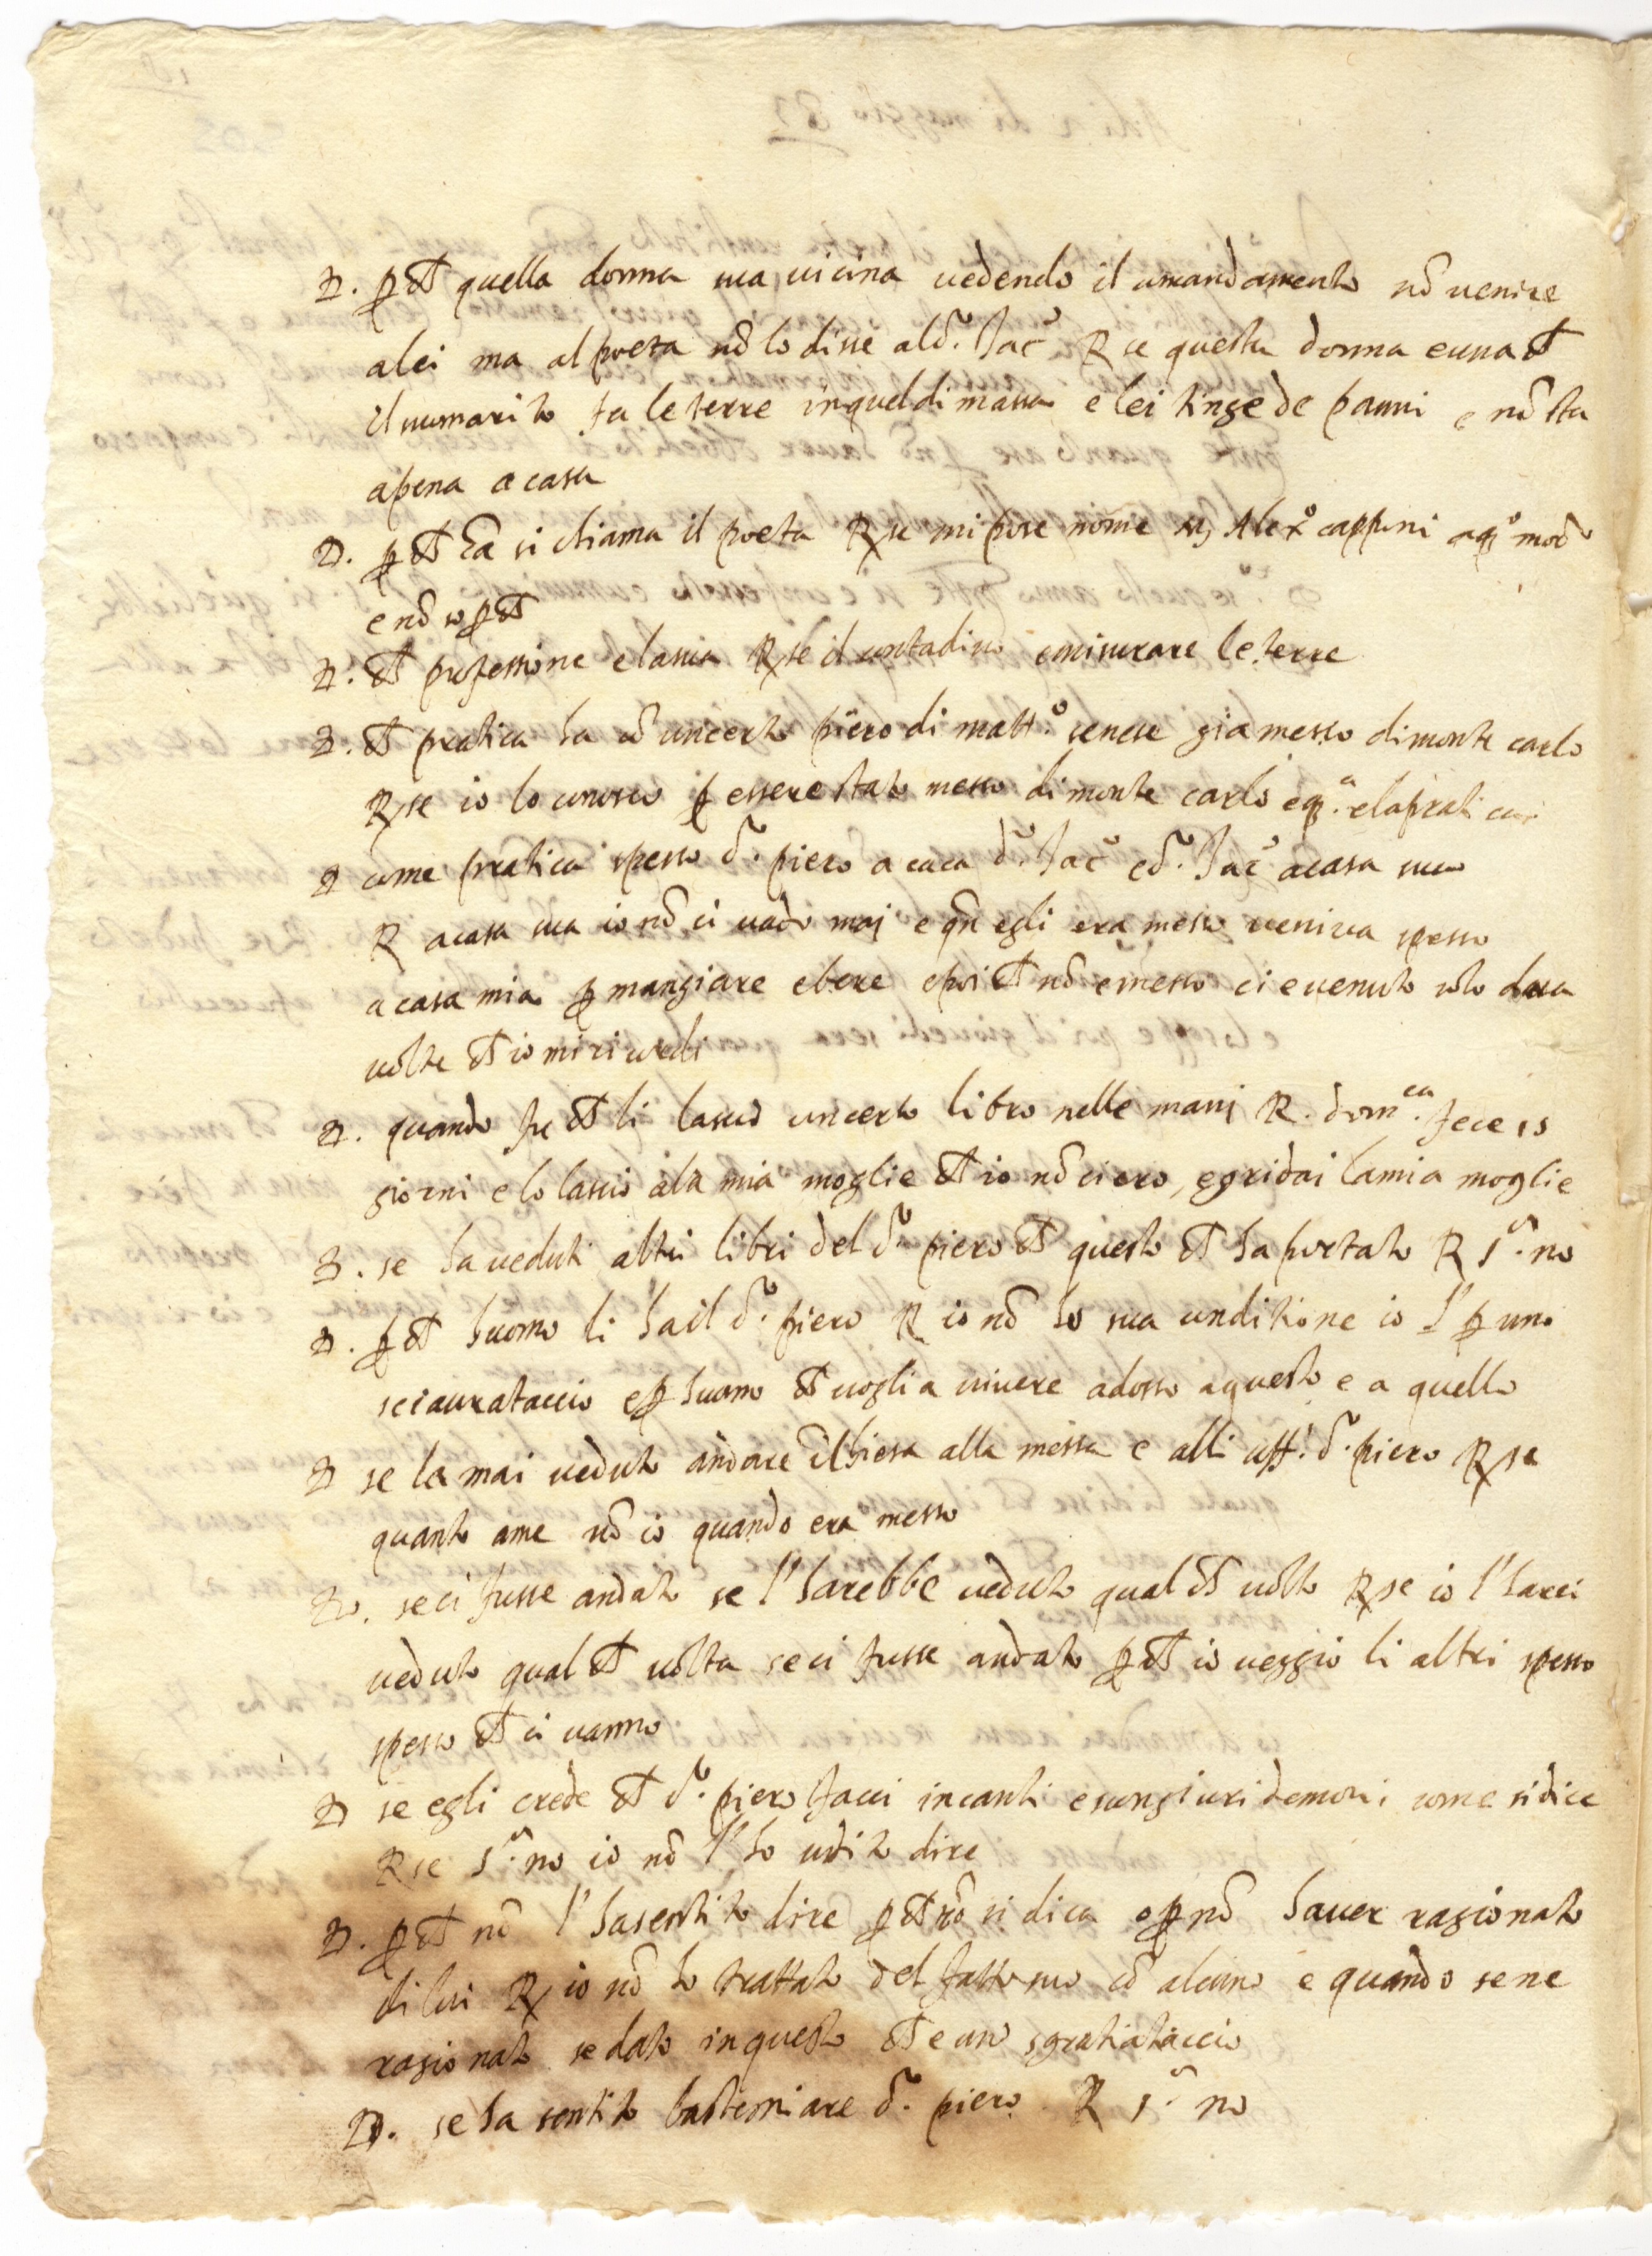 D. p che quella donna sua vicina vedendo il comandamento nō venire
alei ma al poeta nō lo disse al dº. Jacº R se questa donna e una che
il suo marito fa le terre in quel di massa e lei tinge de panni e nō sta
apena a casa
D. p che cā si chiama il poeta Rse mi pose nome Alexº cappuni a qº modº
e nō so p che
D. che professione e la sua Rse il contadino e misurare le terre
D. che pratica ha cō un certo piero di mattº senese gia messo di monte carlo
Rse io lo conosco p essere stato messo di monte carlo e qª. e la pratica
D come pratica spesso dº. piero a casa dº. Jacº e dº. Jacº a casa sua
R a casa sua io nō ci vado maj e qn egli era messo veniva spesso
a casa mia p mangiare e bere e poi che nō e messo ci e venuto solo dua
volte che io mi ricordi
D. quando fu che li lascio un certo libro nelle manj R. domca. fece 15
giorni e lo lascio ala mia moglie che io nō ci ero, e gridai la mia moglie
D. se ha veduti altri libri del dº piero che questo che ha portato R Sr. no
D. p che huomo li ha il dº. piero R io nō so sua conditione io l' p uno
sciaurataccio e p huomo che voglia vivere adosso a questo e a quello
D se la mai veduto andare ī chiesa alla messa e alli uffi. dº. piero Rse
quanto ame nō io quando era messo
D. se ci fusse andato se l'harebbe veduto qual che volto Rse io l'harei
veduto qual che volta se ci fusse andato p che io veggio li altri spesso
spesso che ci vanno
D se egli crede che dº. piero facci incanti e scongiuri demoni come si dice
Rse Sr. no io nō l'ho udito dire
D. p che nō l'ha sentito dire p che nō si dica o p nō haver ragionato
di lui R io nō ho trattato del fatto suo cō alcuno e quando se ne
ragionato se dato in questo che e uno sgratiataccio
D. se ha sentito bastemiare dº. piero R Sr. no